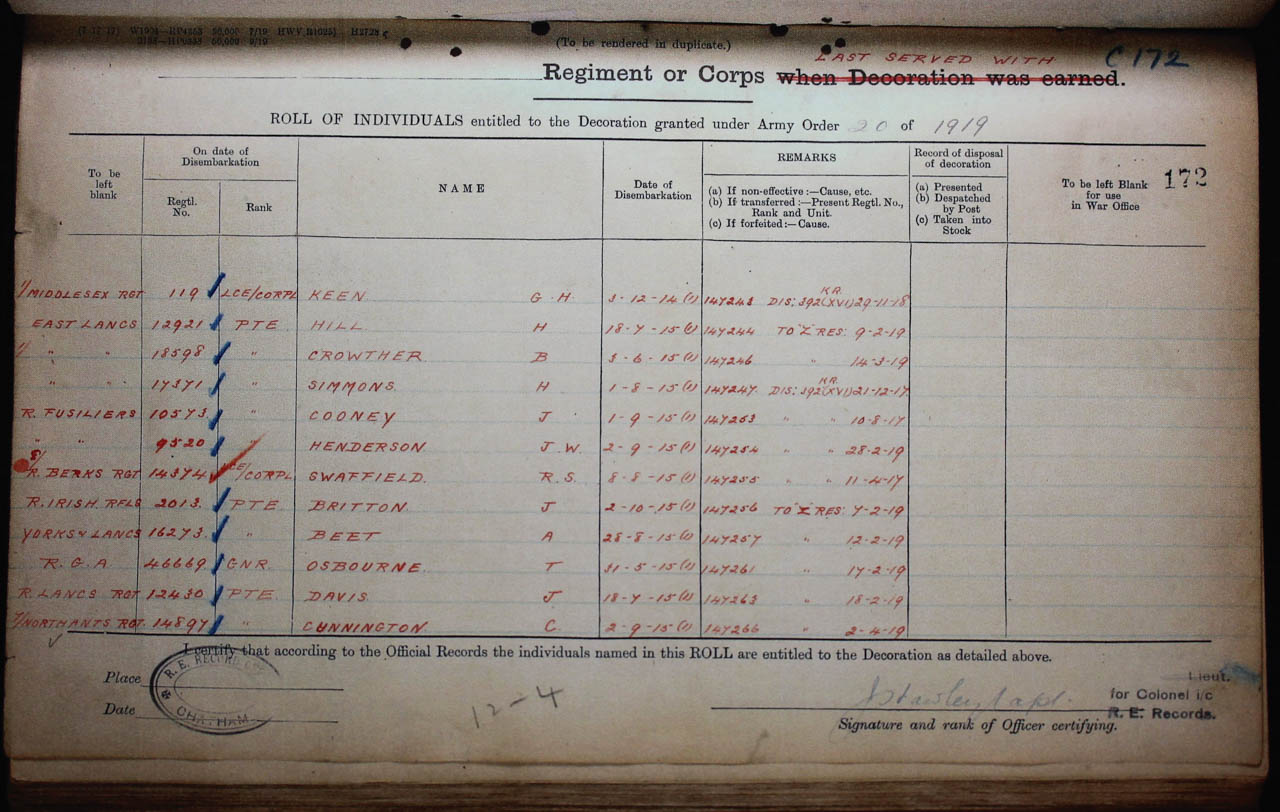 (To be rendered in duplicate.)
LAST SERVED WITH C172
Regiment or Corps when Decoration was earned.
ROLL OF INDIVIDUALS entitled to the Decoration granted under Army Order 20 of 1919
To be left blank
On date of Disembarkation
Regtl. No.
Rank
NAME
Date of Disembarkation
REMARKS
(a) If non-effective :—Cause, etc.
(b) If transferred :—Present Regtl. No., Rank and Unit.
(c) If forfeited :—Cause.
Record of disposal of decoration
(a) Presented
(b) Despatched by Post
(c) Taken into Stock
To be left Blank for use in War Office
172
1/MIDDLESEX RGT 119 LCE/CORPL KEEN G.H. 3-12-14 (1) 147243 DIS: 392 (XVI) K.R. 29-11-18
EAST LANCS 12921 PTE HILL H 18-7-15 (1) 147244 TO "Z" RES: 9-2-19
" " 18598 " CROWTHER B 3-6-15 (1) 147246 " 14-3-19
" " 17371 " SIMMONS H 1-8-15 (1) 147247 DIS: 392 (XVI) K.R. 21-12-17
R. FUSILIERS 10573 " COONEY J 1-9-15 (1) 147253 " " 10-8-17
" " 9520 HENDERSON J.W. 2-9-15 (1) 147254 " " 28-2-19
8/R. BERKS RGT 14374 LCE/CORPL SWAFFIELD R.S. 8-8-15 (1) 147255 " " 11-4-17
R. IRISH RFLS 2013 PTE BRITTON J 2-10-15 (1) 147256 TO "Z" RES: 7-2-19
YORKS & LANCS 16273 " BEET A 28-8-15 (1) 147257 " 12-2-19
R.G.A. 46669 GNR. OSBOURNE T 31-5-15 (1) 147261 " 17-2-19
R. LANCS RGT 12430 PTE DAVIS J 18-7-15 (1) 147263 " 18-2-19
7/NORTHANTS RGT. 14897 " CUNNINGTON C. 2-9-15 (1) 147266 " 2-4-19
I certify that according to the Official Records the individuals named in this ROLL are entitled to the Decoration as detailed above.
Place
Date
R.E. RECORD
CHATHAM
12-4
Lieut.
for Colonel i/c
R. E. Records.
Signature and rank of Officer certifying.